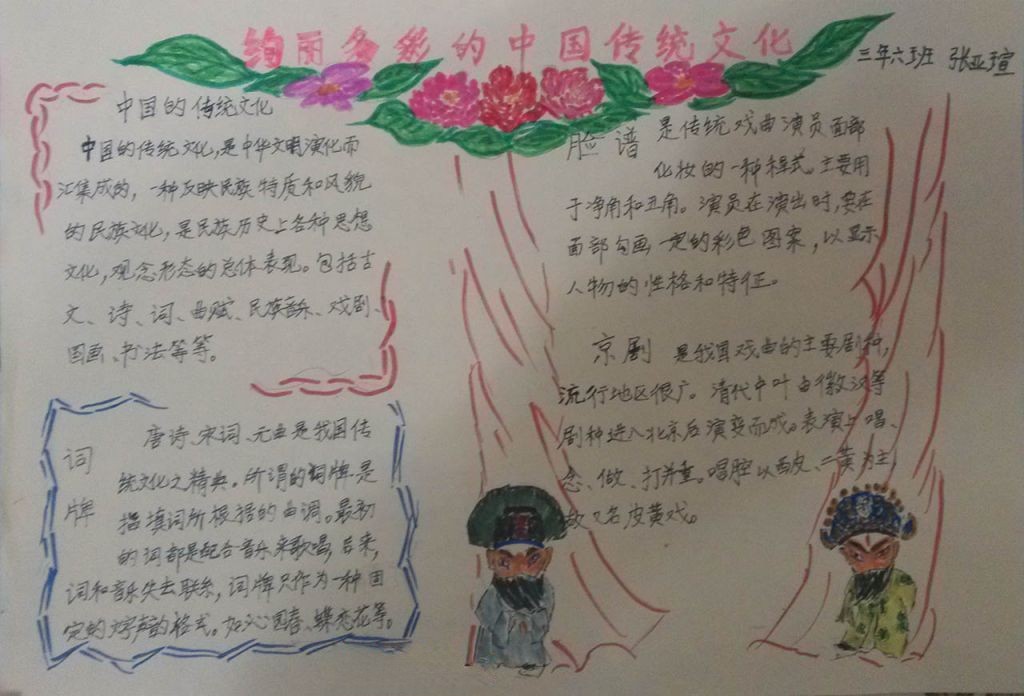 绚丽多彩的中国传统文化
三年六班 张亚瑄
中国的传统文化
中国的传统文化,是中华文明演化而
汇集成的,一种反映民族特质和风貌
的民族文化,是民族历史上各种思想
文化,观念形态的总体表现。包括古
文、诗、词、曲赋、民族音乐、戏剧、
国画、书法等等。
词牌
唐诗、宋词、元曲是我国传
统文化之精典。所谓的词牌是
指填词所根据的曲调。最初
的词都是配合音乐来歌唱,后来,
词和音乐失去联系,词牌只作为一种固
定的文字声韵格式。如沁园春、蝶恋花等。
脸谱 是传统戏曲演员面部
化妆的一种程式。主要用
于净角和丑角。演员在演出时,要在
面部勾画一定的彩色图案,以显示
人物的性格和特征。
京剧 是我国戏曲的主要剧种,
流行地区很广。清代中叶由徽汉等
剧种进入北京后演变而成。表演上唱、
念、做、打并重。唱腔以西皮、二黄为主,
故又名皮黄戏。